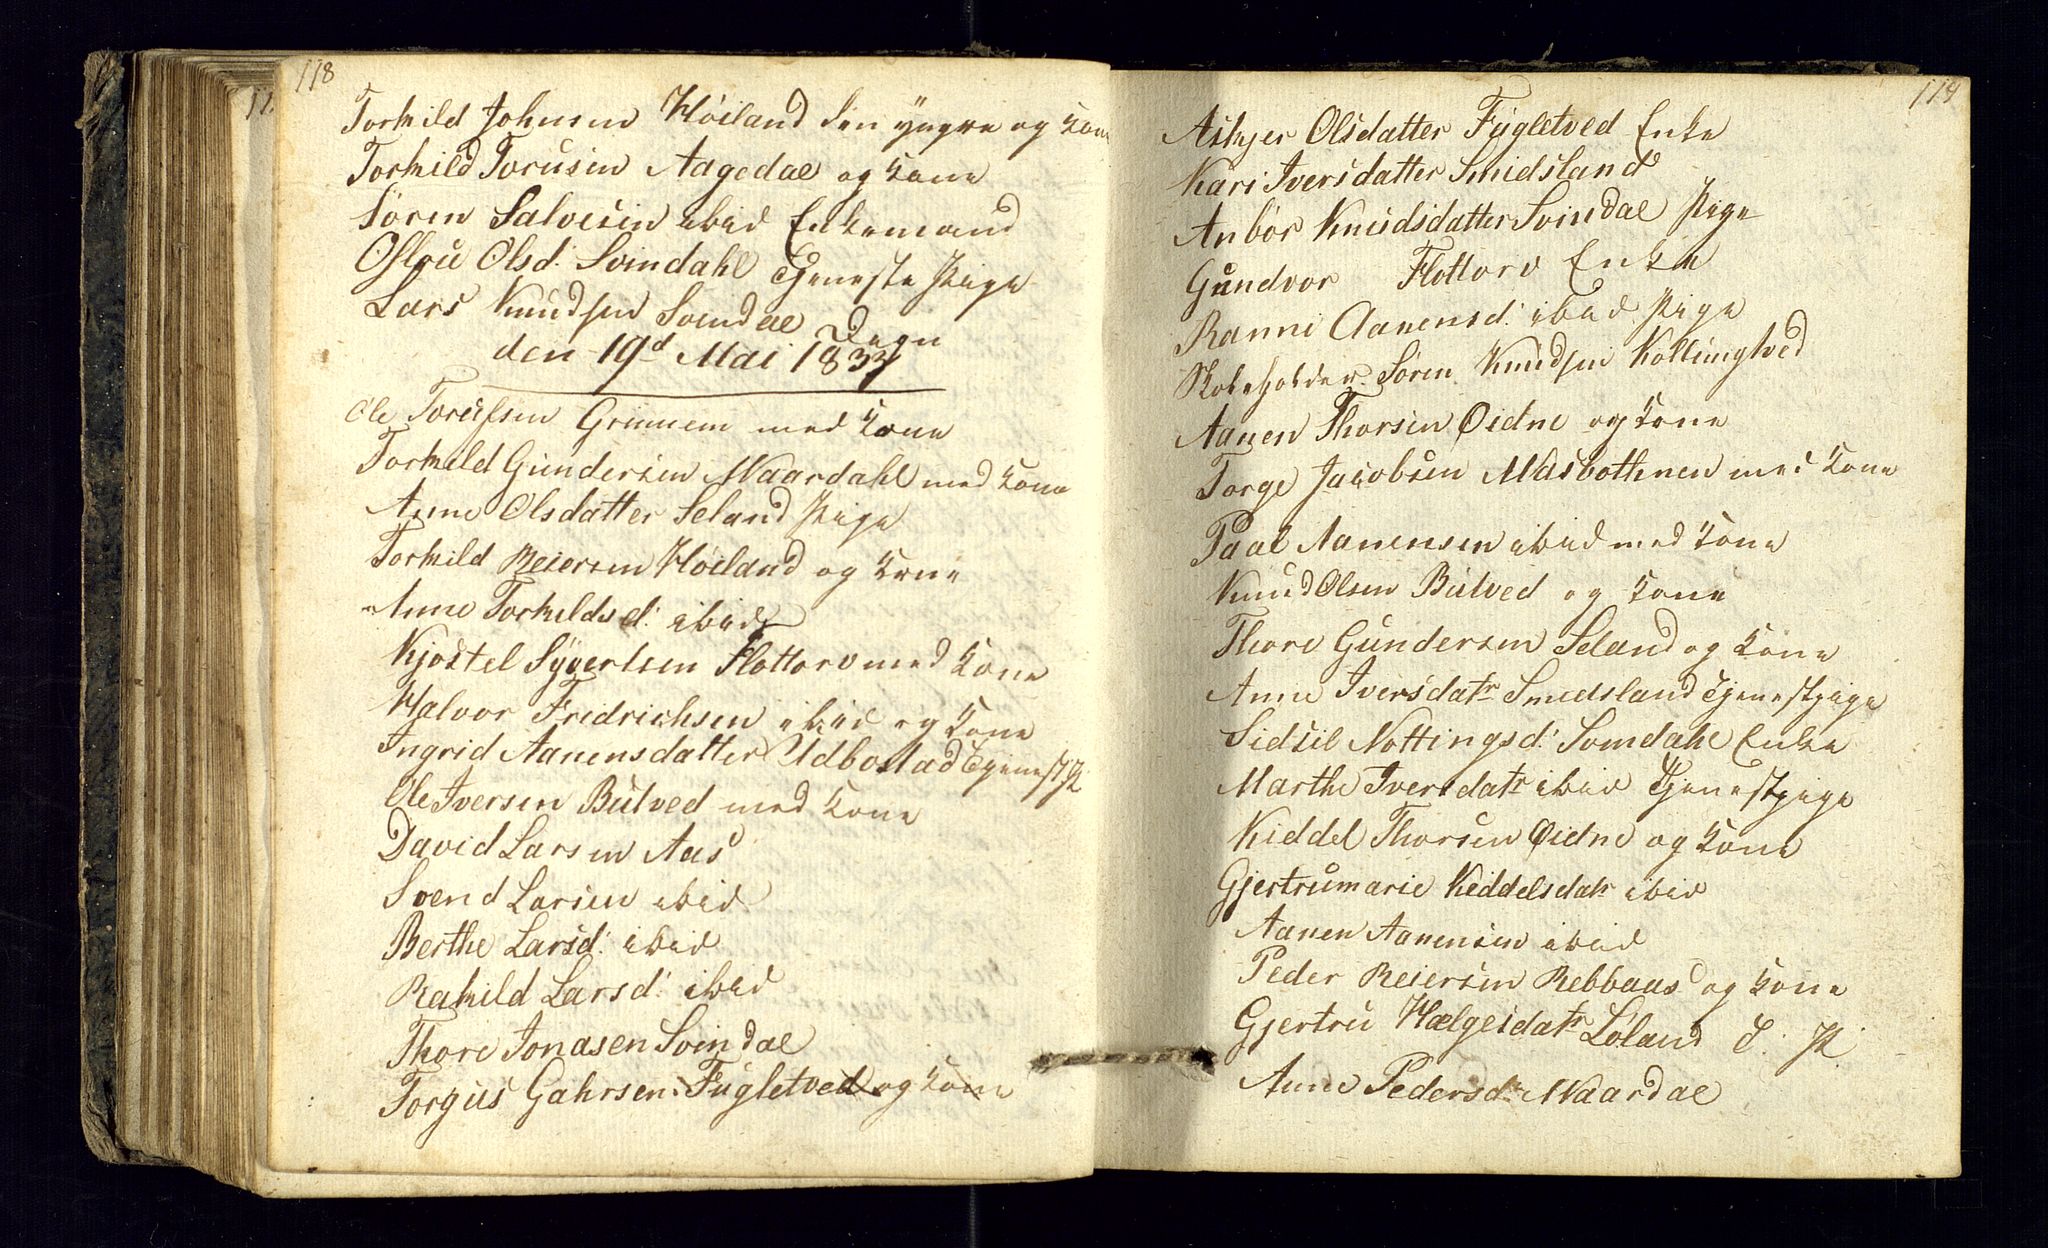 118
Torkild Johnsen Höiland den yngre og Kone
Torkild Torusen Aagedal og Kone
Sören Salvesen ibid Enkemand
Oslou Olsd: Svindahl Tjeneste Pige
Lars Knudsen Svindal Degn
den 19d Mai 1833
Ole Torussen Grimnem med Kone
Torkild Gundersen Maardahl med Kone
Anne Olsdatter Seland Pige
Torkild Reiersen Höiland og Kone
Anne Torkildsd: ibid
Kjöstel Sÿvertsen Flottorv med Kone
Halvor Fridrichsen ibid og Kone
Ingrid Aanensdatter Udbostad Tjenest P
Ole Iversen Butved med Kone
David Larsen Aas
Svend Larsen ibid
Berthe Larsd: ibid
Rakild Larsd: ibid
Thore Jonasen Svindal
Torgus Gahrsen Fugletved og Kone
119
Askjer Olsdatter Fugletved Enke
Kari Iversdatter Smidsland
Anbör Knudsdatter Svindal Pige
Gundvor Flottorv Enke
Ranni Aanensd: ibid Pige
Skoleholder Sören Knudsen Kollungtved
Aanen Thorsen Öidne og Kone
Torge Jacobsen Masbothnen med Kone
Paal Aanensen ibid med Kone
Knud Olsen Butved og Kone
Thore Gundersen Seland og Kone
Anne Iversdatr Smedsland Tjenestpige
Sidsil Nottingsd: Svindahl Enke
Marthe Iversdatr ibid Tjenestpige
Kiddel Thorsen Öidne og Kone
Gjertrumarie Kiddelsdatr ibid
Aanen Aanensen ibid
Peder Reiersen Rebbaas og Kone
Gjertru Hælgesdatr Löland T. P
Anne Pedersdr Maardal